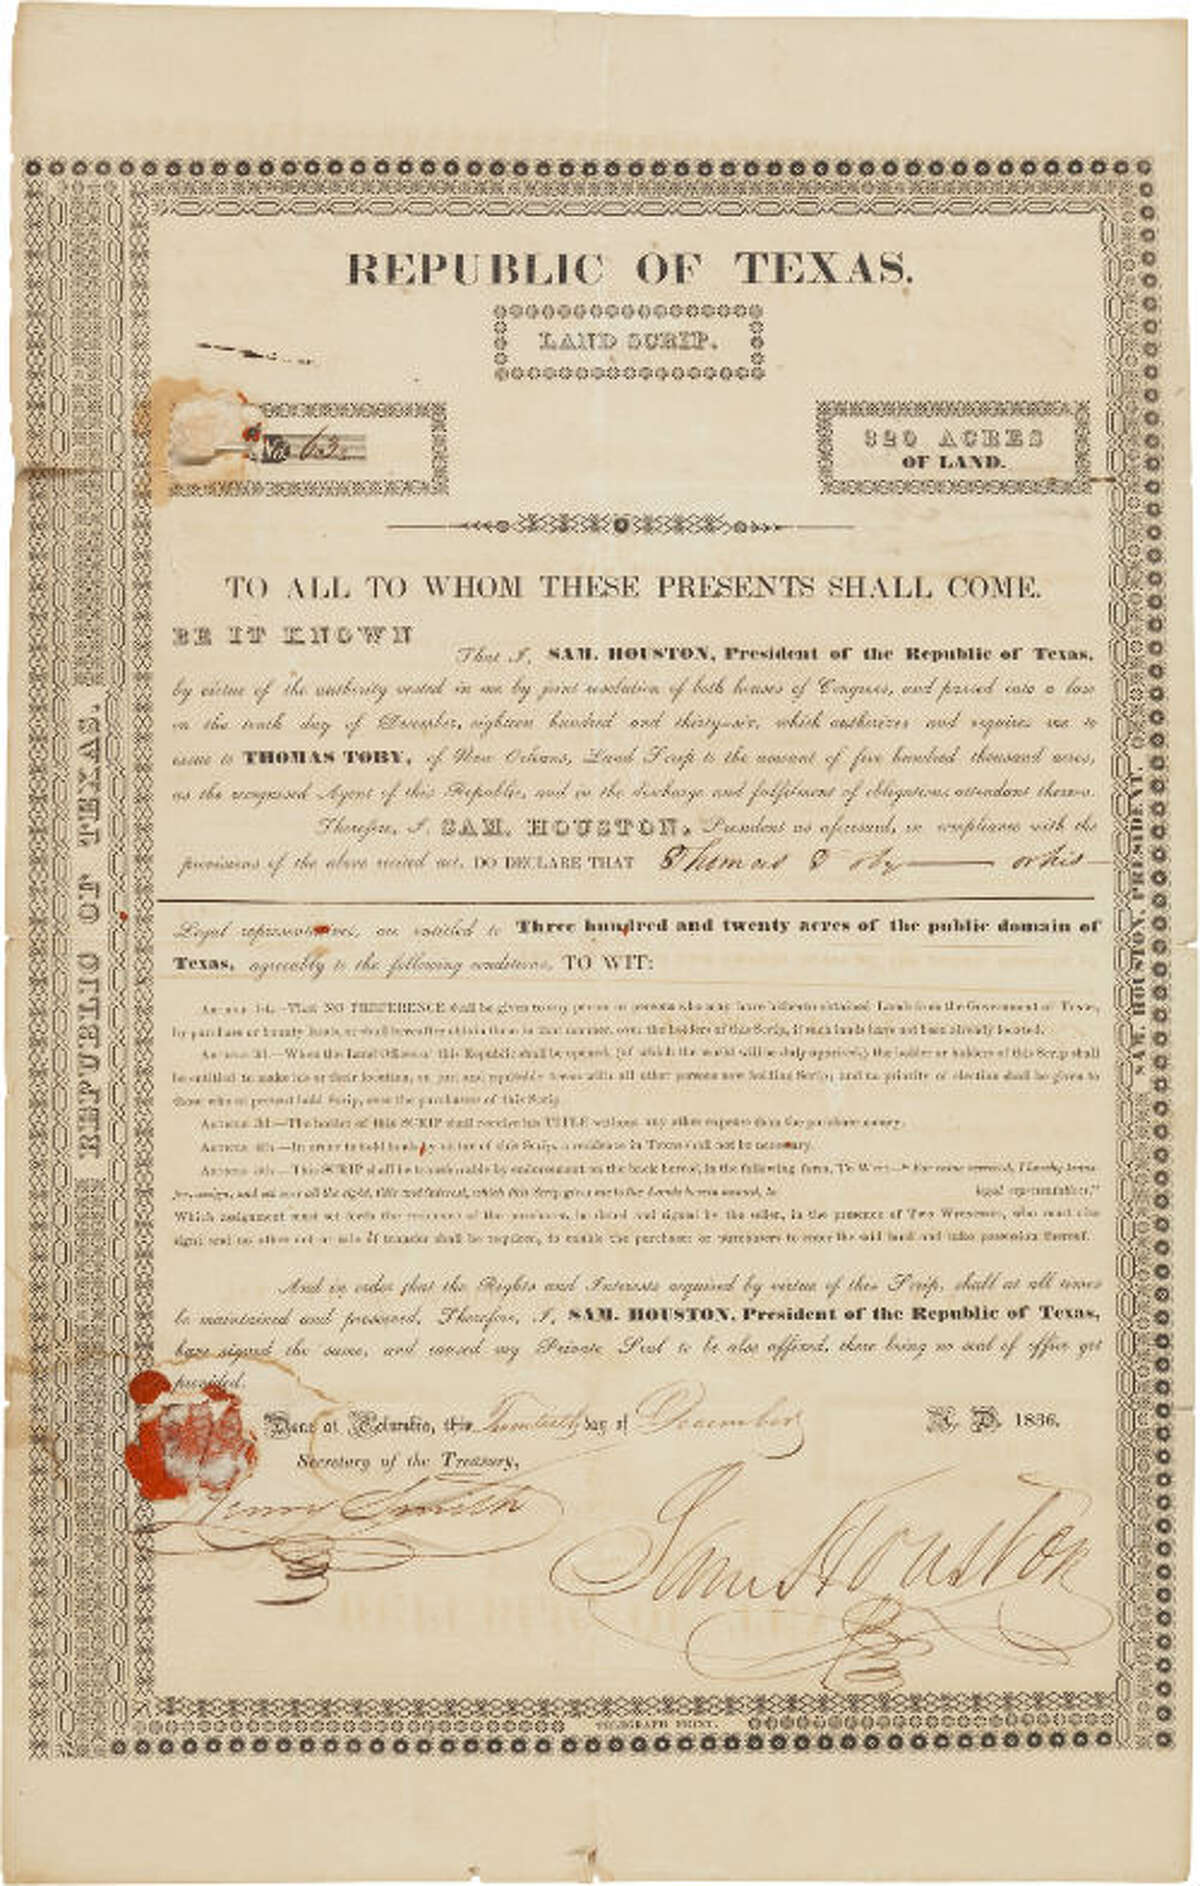 REPUBLIC OF TEXAS.
LAND SCRIP.
No. 63.
320 ACRES
OF LAND.
TO ALL TO WHOM THESE PRESENTS SHALL COME.
BE IT KNOWN
That I, SAM. HOUSTON, President of the Republic of Texas,
by virtue of the authority vested in me by joint resolution of both houses of Congress, and passed into a law
on the tenth day of December, eighteen hundred and thirty-six, which authorizes and requires me to
issue to THOMAS TOBY, of New Orleans, Land Scrip to the amount of five hundred thousand acres,
as the recognised Agent of this Republic, and in the discharge and fulfilment of obligations attendant thereon.
Therefore, I, SAM. HOUSTON, President as aforesaid, in compliance with the
provisions of the above recited act, DO DECLARE THAT Thomas Toby or his
Legal representatives, are entitled to Three hundred and twenty acres of the public domain of
Texas, agreeably to the following conditions, TO WIT:
Article 1st.—That NO PREFERENCE shall be given to any person or persons who may have hitherto obtained Lands from the Government of Texas,
by purchase or bounty lands, or shall hereafter obtain them in that manner, over the holders of this Scrip, if such lands have not been already located.
Article 2d.—When the Land Offices of this Republic shall be opened, (of which the world will be duly apprised,) the holder or holders of this Scrip shall
be entitled to make his or their location, on just and equitable terms with all other persons now holding Scrip; and no priority of election shall be given to
those who at present hold Scrip, over the purchasers of this Scrip.
Article 3d.—The holder of this SCRIP shall receive his TITLE without any other expense than the purchase money.
Article 4th.—In order to hold lands by virtue of this Scrip, a residence in Texas shall not be necessary.
Article 5th.—This SCRIP shall be transferable by endorsement on the back hereof, in the following form, To Wit:—"For value received, I hereby trans-
fer, assign, and set over all the right, title and interest, which this Scrip gives me to the Lands herein named, to legal representatives."
Which assignment must set forth the residence of the purchaser, be dated and signed by the seller, in the presence of Two Witnesses, who must also
sign; and no other act or sale of transfer shall be required, to enable the purchaser or purchasers to enter the said land and take possession thereof.
And in order that the Rights and Interests acquired by virtue of this Scrip, shall at all times
be maintained and preserved, Therefore, I, SAM. HOUSTON, President of the Republic of Texas,
have signed the same, and caused my Private Seal to be also affixed, there being no seal of office yet
provided.
Done at Columbia, this Twentieth day of December A. D. 1836.
Secretary of the Treasury,
Henry Smith
Sam Houston
TELEGRAPH PRINT.
REPUBLIC OF TEXAS.
SAM. HOUSTON, PRESIDENT.